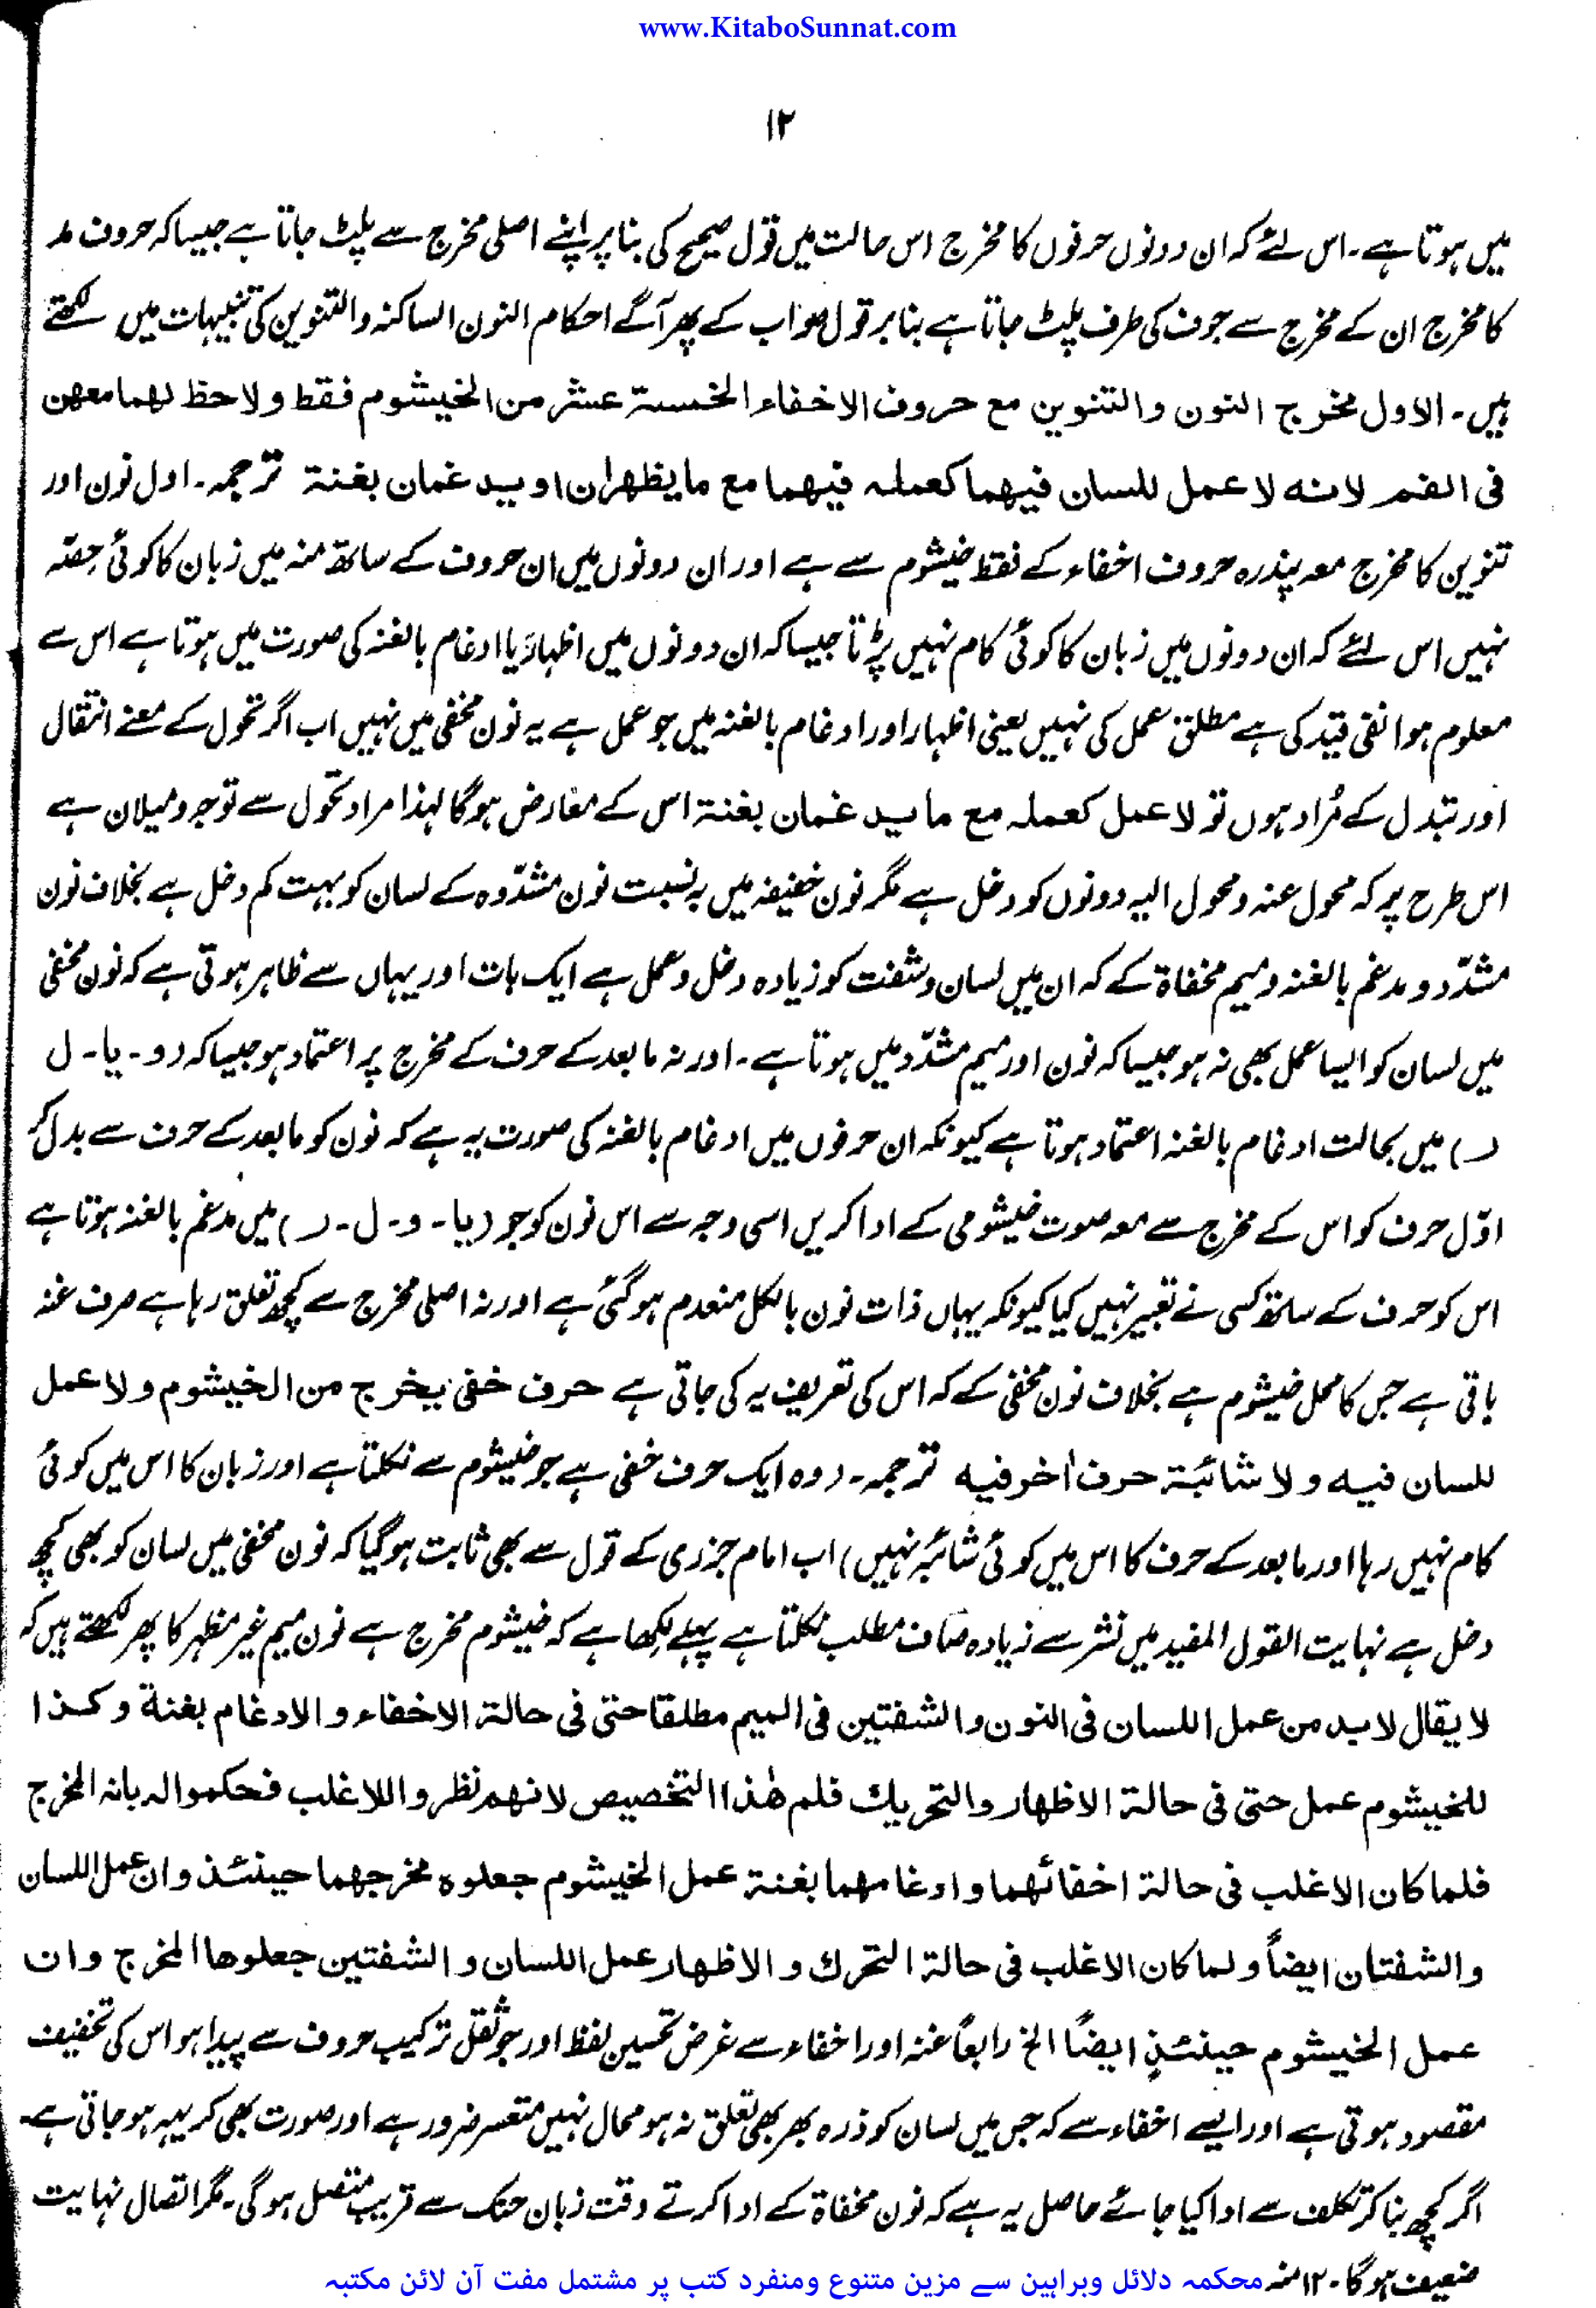 www.KitaboSunnat.com
۱۲
میں ہوتا ہے۔ اس لئے کہ ان دونوں حرفوں کا مخرج اس حالت میں قول صحیح کی بنا پر اپنے اصلی مخرج سے پلٹ جاتا ہے جیسا کہ حروف مد
کا مخرج ان کے مخرج سے جوف کی طرف پلٹ جاتا ہے بنا بر قول صواب کے پھر آگے احکام النون الساکنہ والتنوین کی تنبیہات میں لکھتے
ہیں۔ الاول مخرج النون والتنوین مع حروف الاخفاء الخمسة عشر من الخیشوم فقط ولاحظ لهما معهن
فی الفم لانه لا عمل للسان فیهما کعمله فیهما مع ما یظهران او یدغمان بغنة ترجمہ۔ اول نون اور
تنوین کا مخرج معہ پندرہ حروف اخفاء کے فقط خیشوم سے ہے اور ان دونوں میں ان حروف کے ساتھ منہ میں زبان کا کوئی حصّہ
نہیں اس لئے کہ ان دونوں میں زبان کا کوئی کام نہیں پڑتا جیسا کہ ان دونوں میں اظہار یا ادغام بالغنہ کی صورت میں ہوتا ہے اس سے
معلوم ہوا نفی قید کی ہے مطلق عمل کی نہیں یعنی اظہار اور ادغام بالغنہ میں جو عمل ہے یہ نون مخفی میں نہیں اب اگر تحول کے معنے انتقال
اور تبدل کے مُراد ہوں تو لا عمل کعملہ مع ما یدغمان بغنة اس کے معارض ہوگا لہذا مراد تحّول سے توجہ و میلان ہے
اس طرح پر کہ محول عنہ و محول الیہ دونوں کو دخل ہے مگر نون خفیفہ میں بہ نسبت نون مشدّدہ کے لسان کو بہت کم دخل ہے بخلاف نون
مشدّد و مدغم بالغنہ و میم مخفاة کے کہ ان میں لسان و شفت کو زیادہ دخل و عمل ہے ایک بات اور یہاں سے ظاہر ہوتی ہے کہ نون مخفی
میں لسان کو ایسا عمل بھی نہ ہو جیسا کہ نون اور میم مشدّد میں ہوتا ہے۔ اور نہ ما بعد کے حرف کے مخرج پر اعتماد ہو جیسا کہ (و۔ یا۔ ل
ر) میں بحالت ادغام بالغنہ اعتماد ہوتا ہے کیونکہ ان حرفوں میں ادغام بالغنہ کی صورت یہ ہے کہ نون کو ما بعد کے حرف سے بدل کر
اوّل حرف کو اس کے مخرج سے معہ صوت خیشومی کے ادا کریں اسی وجہ سے اس نون کو جو (یا۔ و۔ ل۔ ر) میں مدغم بالغنہ ہوتا ہے
اس کو حرف کے ساتھ کسی نے تعبیر نہیں کیا کیونکہ یہاں ذات نون بالکل منعدم ہو گئی ہے اور نہ اصلی مخرج سے کچھ تعلق رہا ہے صرف غنہ
باقی ہے جس کا محل خیشوم ہے بخلاف نون مخفی کے کہ اس کی تعریف یہ کی جاتی ہے حرف خفی یخرج من الخیشوم ولا عمل
للسان فیه ولا شائبة حرف اٰخر فیه ترجمہ۔ (وہ ایک حرف خفی ہے جو خیشوم سے نکلتا ہے اور زبان کا اس میں کوئی
کام نہیں رہا اور ما بعد کے حرف کا اس میں کوئی شائبہ نہیں) اب امام جزری کے قول سے بھی ثابت ہوگیا کہ نون مخفی میں لسان کو بھی کچھ
دخل ہے نہایت القول المفید میں نشر سے زیادہ صاف مطلب نکلتا ہے پہلے لکھا ہے کہ خیشوم مخرج ہے نون میم غیر مظہر کا پھر لکھتے ہیں کہ
لا یقال لا بد من عمل اللسان فی النون والشفتین فی المیم مطلقا حتی فی حالة الاخفاء والادغام بغنة وکذا
للخیشوم عمل حتی فی حالة الاظهار والتحریك فلم هٰذا التخصیص لانهم نظروا للاغلب فحکموا لہ بانہ المخرج
فلما کان الاغلب فی حالة اخفائهما وادغامهما بغنة عمل الخیشوم جعلوہ مخرجهما حینئذ وان عمل اللسان
والشفتان ایضاً ولما کان الاغلب فی حالة التحرك والاظهار عمل اللسان والشفتین جعلوها المخرج وان
عمل الخیشوم حینئذٍ ایضًا الخ رابعاً غنہ اور اخفاء سے غرض تحسین لفظ اور جو ثقل ترکیب حروف سے پیدا ہو اس کی تخفیف
مقصود ہوتی ہے اور ایسے اخفاء سے کہ جس میں لسان کو ذرہ بھر بھی تعلق نہ ہو محال نہیں متعسر ضرور ہے اور صورت بھی کریہہ ہو جاتی ہے۔
اگر کچھ بنا کر تکلف سے ادا کیا جائے حاصل یہ ہے کہ نون مخفاة کے ادا کرتے وقت زبان حنک سے قریب متصل ہوگی۔ مگر اتصال نہایت
ضعیف ہوگا۔ ۱۲ منہ
محکمہ دلائل وبراہین سے مزین متنوع ومنفرد کتب پر مشتمل مفت آن لائن مکتبہ